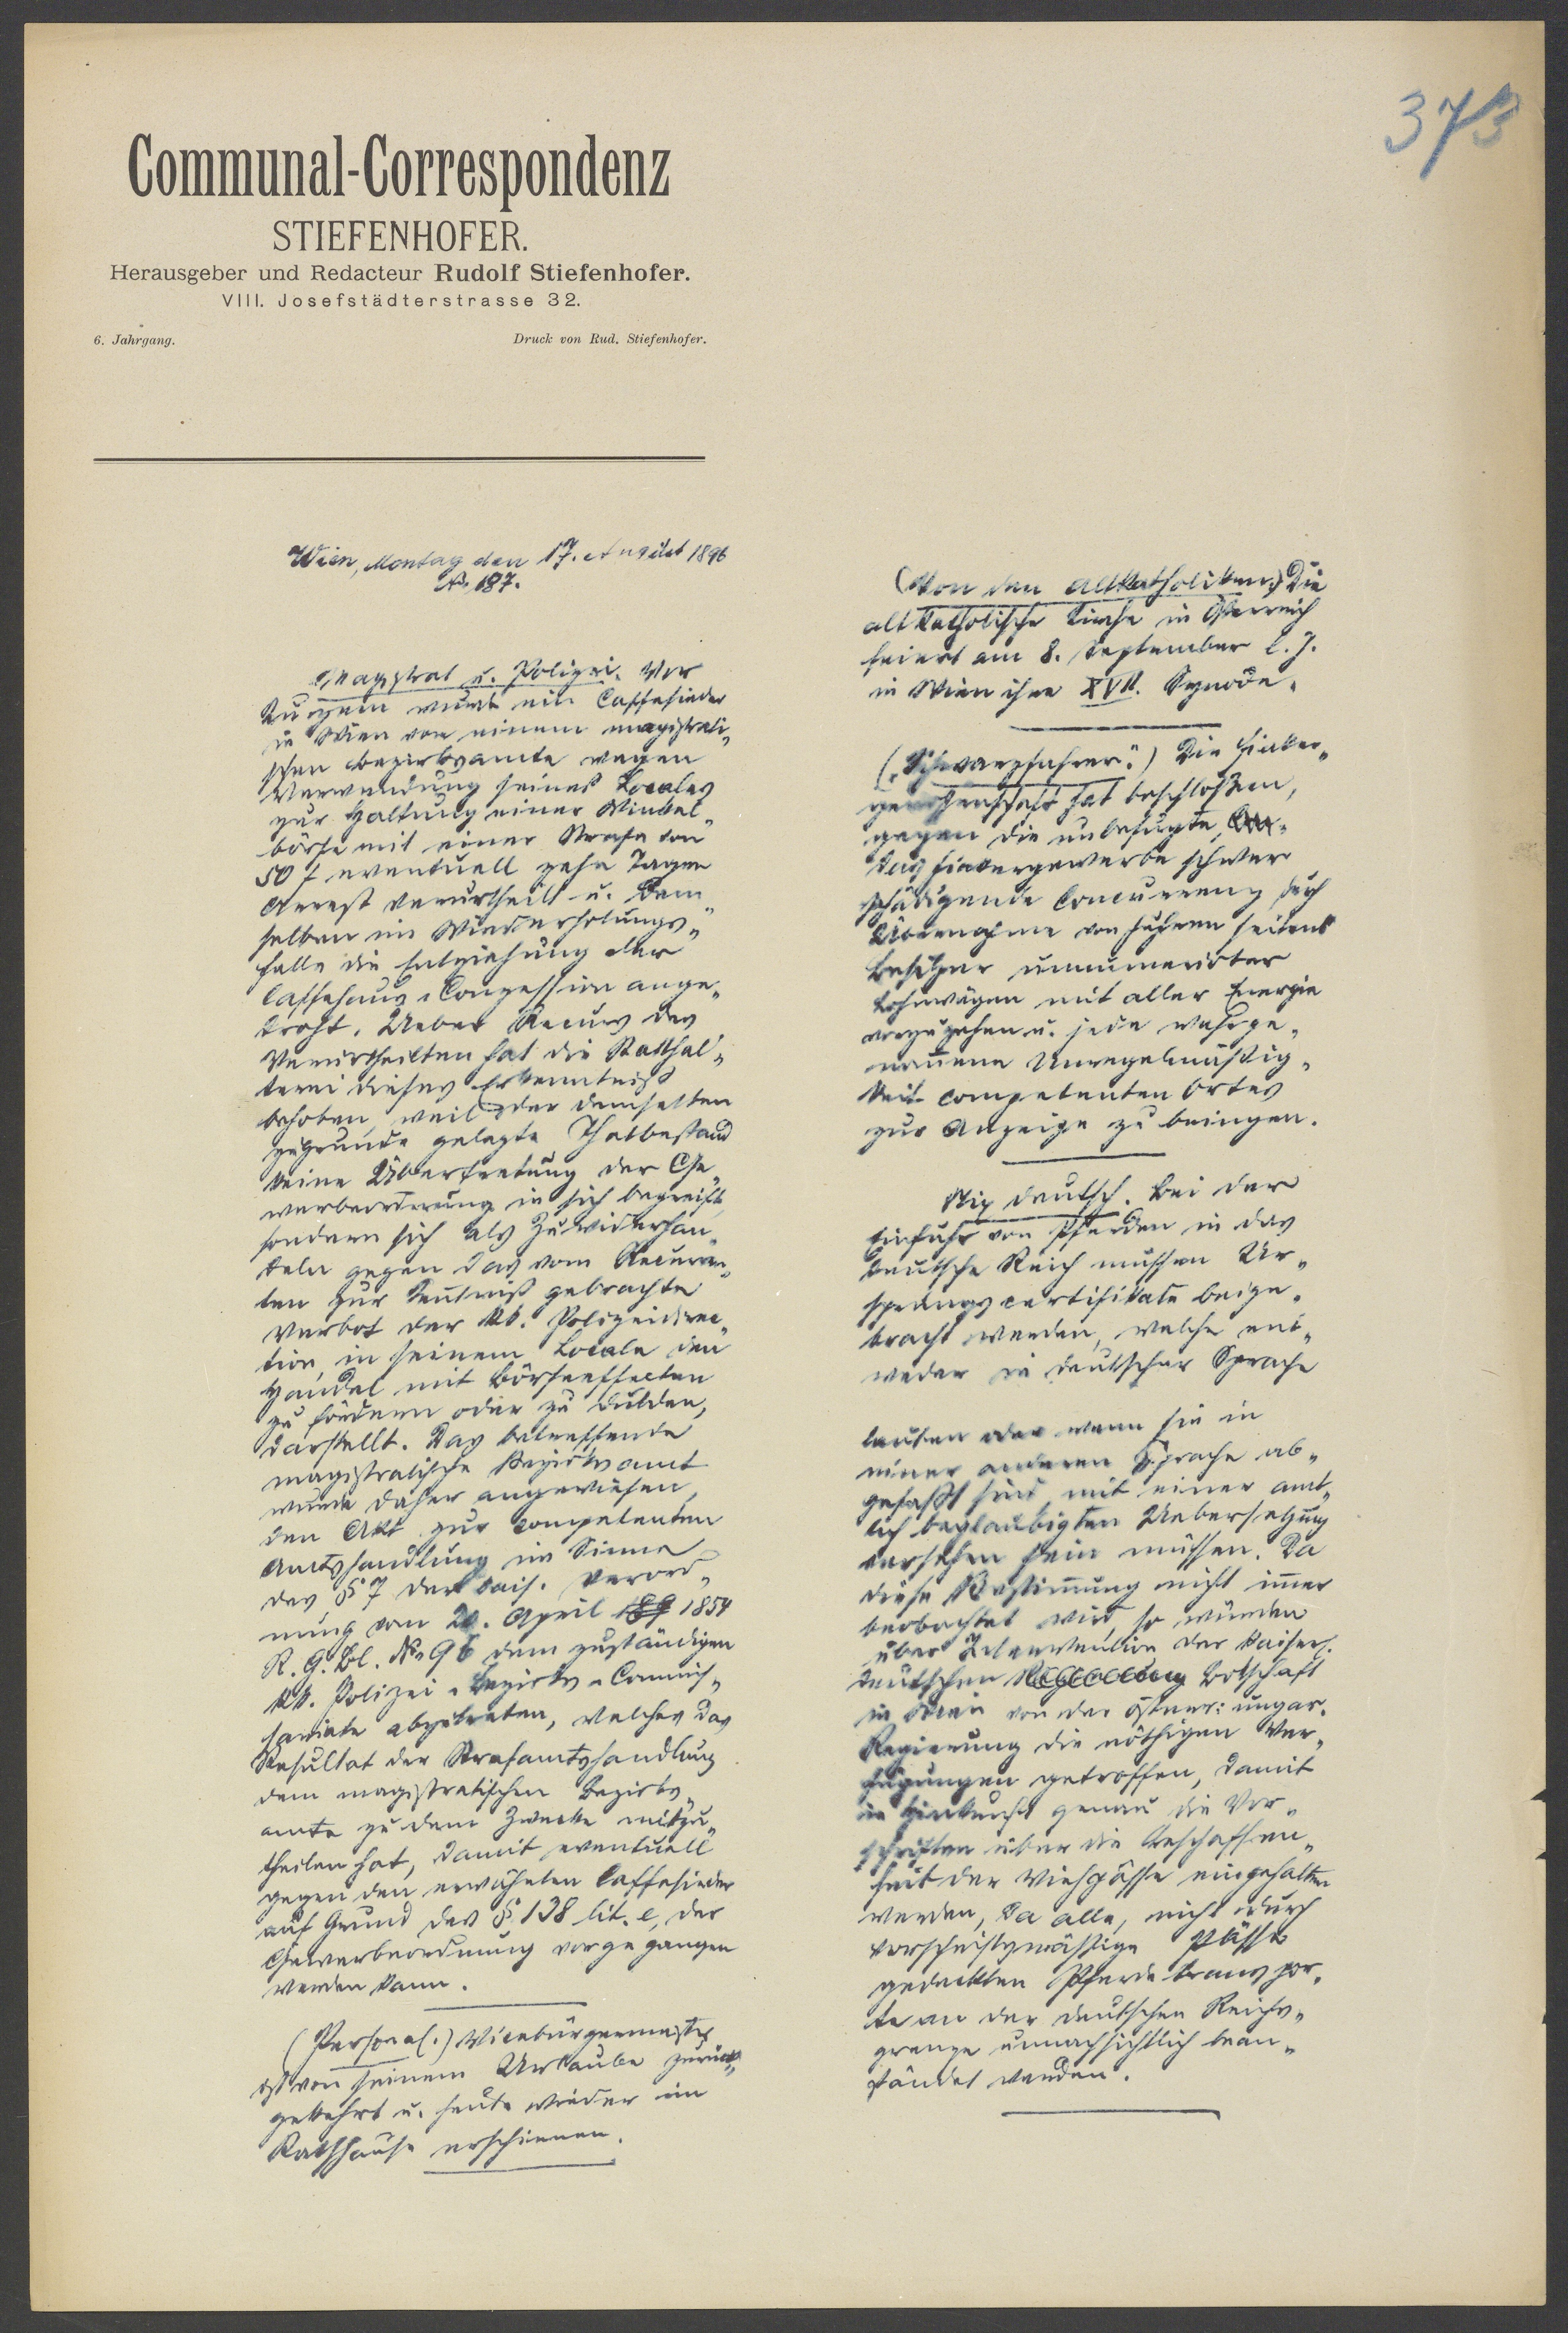 373
Communal-Correspondenz
STIEFENHOFER.
Herausgeber und Redacteur Rudolf Stiefenhofer.
VIII. Josefstädterstrasse 32.
6. Jahrgang. Druck von Rud. Stiefenhofer.
Wien, Montag den 17. August 1896
No. 187.
Magistrat u. Polizei. Vor
Kurzem wurde ein Caffesieder
in Wien von einem magistrati-
schen Bezirksamte wegen
Verwendung seines Locales
zur Haltung einer Winkel-
börse mit einer Strafe von
50 f eventuell zehn Tagen
Arrest verurtheilt u. dem
selben im Wiederholungs-
falle die Entziehung der
Caffehaus-Conzession ange-
droht. Ueber Recurs des
Verurtheilten hat die Statthal-
terei dieses Erkenntniß
behoben, weil der demselben
zugrunde gelegte Thatbestand
keine Übertretung der Ge-
werbeordnung in sich begreift,
sondern sich als Zuwiderhan-
deln gegen das vom Recurren-
ten zur Kenntniß gebrachte
Verbot der kk. Polizeidirec-
tion, in seinem Locale den
Handel mit Börseeffecten
zu fördern oder zu dulden,
darstellt. Das betreffende
magistratische Bezirksamt
wurde daher angewiesen,
den Akt zur competenten
Amtshandlung im Sinne
des § 7 der kais. Verord-
nung vom 20. April 1854
R. G. Bl. No 96 dem zuständigen
kk. Polizei-Bezirks-Commis-
sariate abzutreten, welches das
Resultat der Strafamtshandlung
dem magistratischen Bezirks-
amte zu dem Zwecke mitzu-
theilen hat, damit eventuell
gegen den erwähnten Caffesieder
auf Grund des § 138 lit. e, der
Gewerbeordnung vorgegangen
werden kann.
(Personal.) Vicebürgermeister
ist von seinem Urlaube zurück-
gekehrt u. heute wieder im
Rathhause erschienen.
(Von den Altkatholiken.) Die
altkatholische Kirche in Österreich
feiert am 8. September l. J.
in Wien ihre XVII. Synode.
("Schwarzfahrer.") Die Fiaker-
genossenschaft hat beschloßen,
gegen die unbefugte,
das Fiakergewerbe schwer
schädigende Concurrenz durch
Übernahme von Fuhren seitens
Besitzer unnumerirter
Lohnwägen mit aller Energie
vorzugehen u. jede wahrge-
nom̅ene Unregelmäßig-
keit competenten Ortes
zur Anzeige zu bringen.
Nix deutsch. Bei der
Einfuhr von Pferden in das
Deutsche Reich müssen Ur-
sprungscertifikate beige-
bracht werden, welche ent-
weder in deutscher Sprache
lauten oder wenn sie in
einer anderen Sprache ab-
gefaßt sind, mit einer amt-
lich beglaubigten Uebersetzung
versehen sein müssen. Da
diese Bestim̅ung nicht im̅er
beobachtet wird, so wurden
über Intervention der kaiserl.
deutschen Botschaft
in Wien von der österr: ungar.
Regierung die nöthigen Ver-
fügungen getroffen, damit
in Hinkunft genau die Vor-
schriften über die Beschaffen-
heit der Viehpässe eingehalten
werden, da alle, nicht durch
vorschriftsmässige Pässe
gedeckten Pferdetranspor-
te an der deutschen Reichs-
grenze unnachsichtlich bean-
ständet werden.